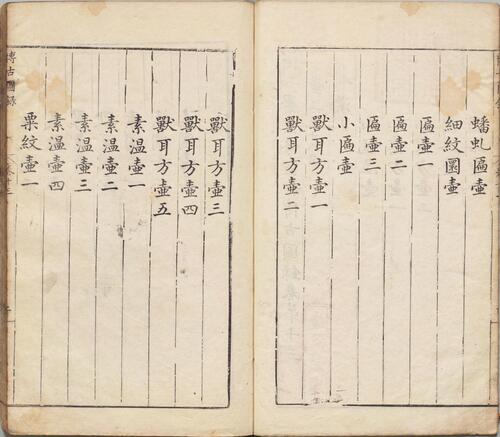 蟠虬匾壺
細紋圓壺
匾壺一
匾壺二
匾壺三
小匾壺
獸耳方壺一
獸耳方壺二
獸耳方壺三
獸耳方壺四
獸耳方壺五
素温壺一
素温壺二
素温壺三
素温壺四
粟紋壺一
博古圖錄